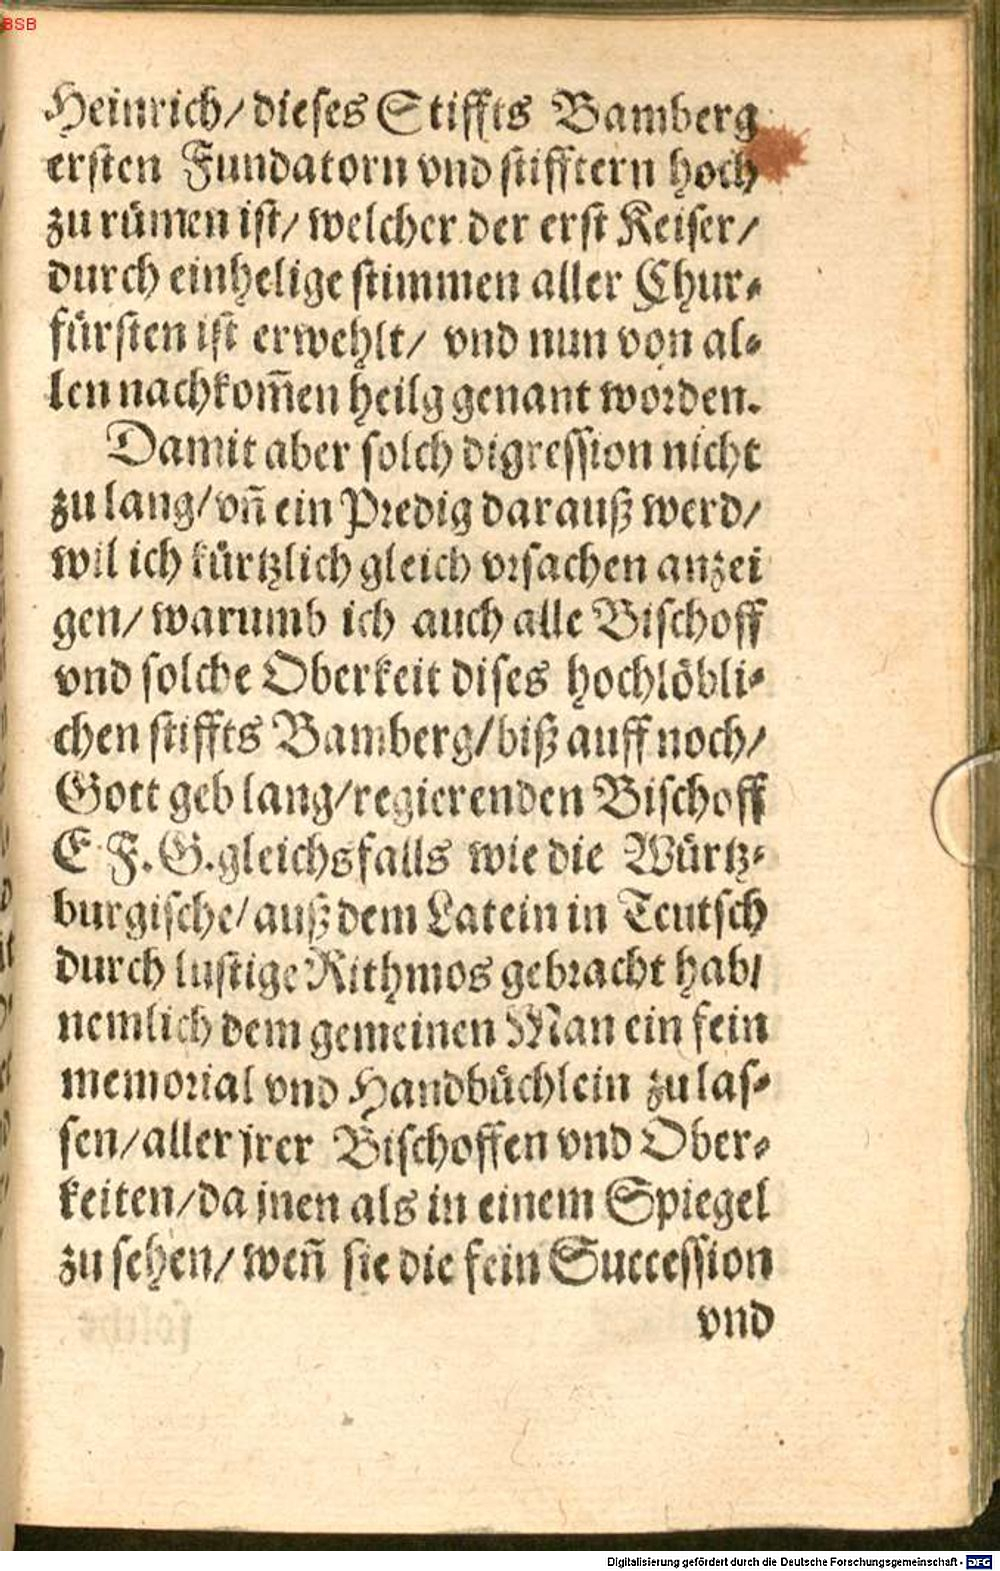 BSB
Heinrich/ dieses Stiffts Bamberg
ersten Fundatorn vnd stifftern hoch
zu rümen ist/ welcher der erst Keiser/
durch einhelige stimmen aller Chur⸗
fürsten ist erwehlt/ vnd nun von al⸗
len nachkom̅en heilg genant worden.
Damit aber solch digression nicht
zu lang/ vn̅ ein Predig darauß werd/
wil ich kürtzlich gleich vrsachen anzei
gen/ warumb ich auch alle Bischoff
vnd solche Oberkeit dises hochlöbli⸗
chen stiffts Bamberg/ biß auff noch/
Gott geb lang/ regierenden Bischoff
E F. G. gleichsfalls wie die Würtz⸗
burgische/ auß dem Latein in Teutsch
durch lustige Rithmos gebracht hab/
nemlich dem gemeinen Man ein fein
memorial vnd Handbüchlein zu las⸗
sen/ aller jrer Bischoffen vnd Ober⸗
keiten/ da jnen als in einem Spiegel
zu sehen/ wen̅ sie die fein Succession
vnd
Digitalisierung gefördert durch die Deutsche Forschungsgemeinschaft - DFG